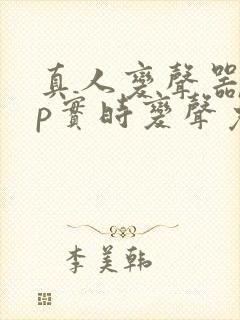 真人變聲器
p實時變聲
李美韩